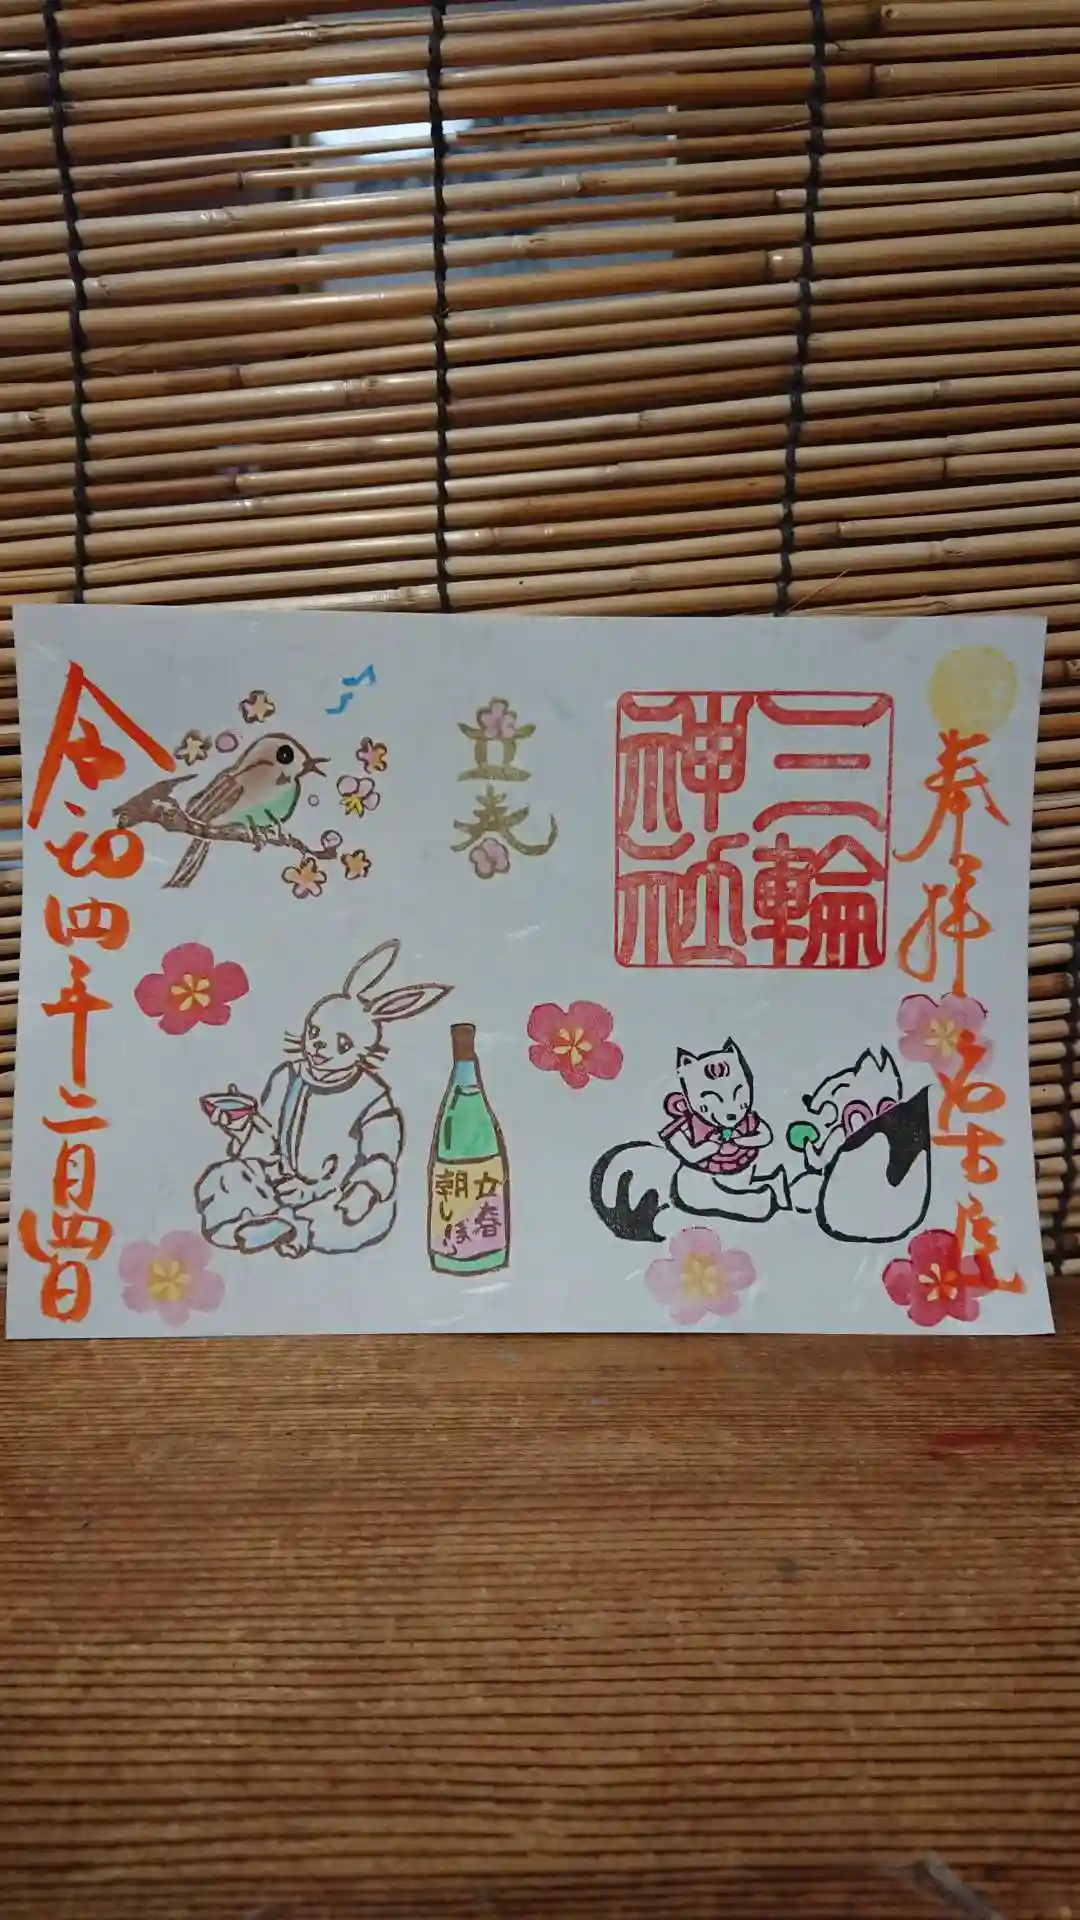 奉拝
名古屋
三輪
神社
立春
立春
朝しぼり
令和四年二月四日